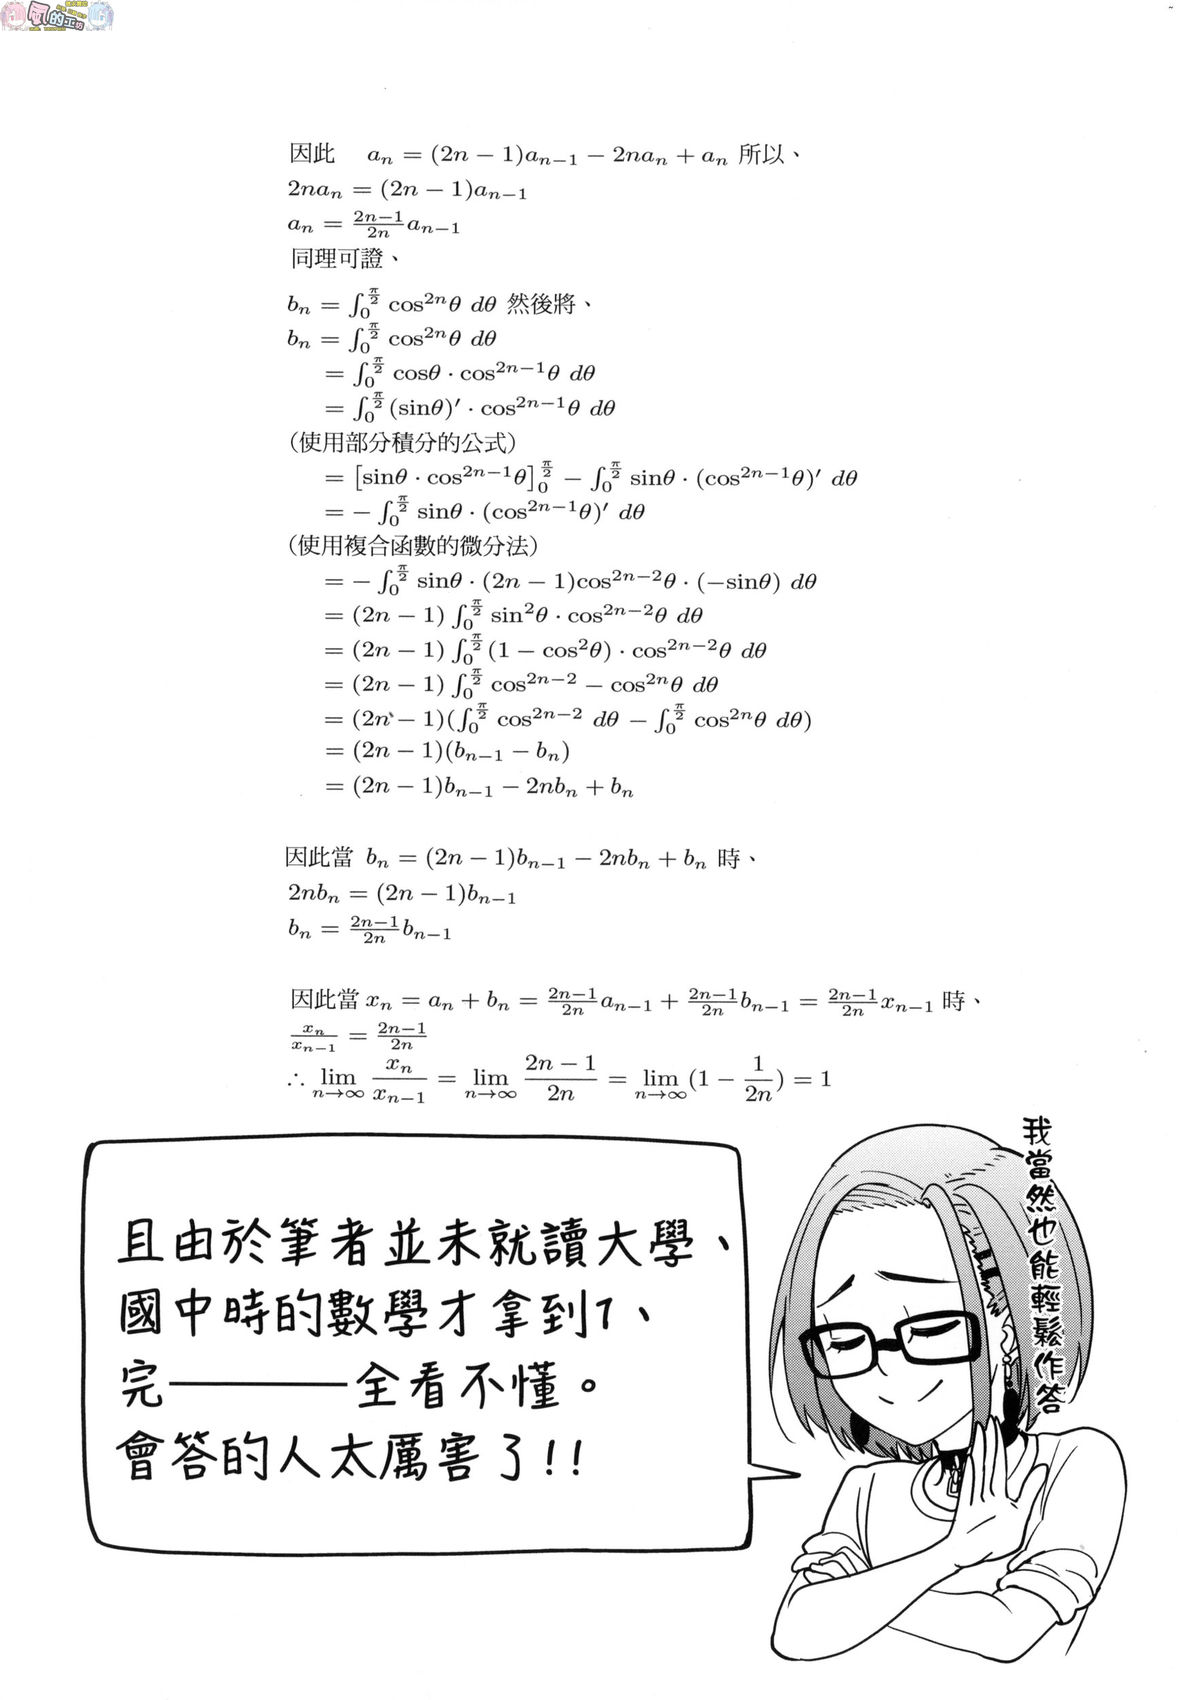 氣的工坊
因此 aₙ = (2n − 1)aₙ₋₁ − 2naₙ + aₙ 所以、
2naₙ = (2n − 1)aₙ₋₁
aₙ = \frac{2n−1}{2n}aₙ₋₁
同理可證、
bₙ = ∫_0^{\frac{π}{2}} cos²ⁿθ dθ 然後將、
bₙ = ∫_0^{\frac{π}{2}} cos²ⁿθ dθ
= ∫_0^{\frac{π}{2}} cosθ · cos²ⁿ⁻¹θ dθ
= ∫_0^{\frac{π}{2}} (sinθ)′ · cos²ⁿ⁻¹θ dθ
(使用部分積分的公式)
= [sinθ · cos²ⁿ⁻¹θ]_0^{\frac{π}{2}} − ∫_0^{\frac{π}{2}} sinθ · (cos²ⁿ⁻¹θ)′ dθ
= − ∫_0^{\frac{π}{2}} sinθ · (cos²ⁿ⁻¹θ)′ dθ
(使用複合函數的微分法)
= − ∫_0^{\frac{π}{2}} sinθ · (2n − 1)cos²ⁿ⁻²θ · (−sinθ) dθ
= (2n − 1) ∫_0^{\frac{π}{2}} sin²θ · cos²ⁿ⁻²θ dθ
= (2n − 1) ∫_0^{\frac{π}{2}} (1 − cos²θ) · cos²ⁿ⁻²θ dθ
= (2n − 1) ∫_0^{\frac{π}{2}} cos²ⁿ⁻² − cos²ⁿθ dθ
= (2n − 1)(∫_0^{\frac{π}{2}} cos²ⁿ⁻² dθ − ∫_0^{\frac{π}{2}} cos²ⁿθ dθ)
= (2n − 1)(bₙ₋₁ − bₙ)
= (2n − 1)bₙ₋₁ − 2nbₙ + bₙ
因此當 bₙ = (2n − 1)bₙ₋₁ − 2nbₙ + bₙ 時、
2nbₙ = (2n − 1)bₙ₋₁
bₙ = \frac{2n−1}{2n}bₙ₋₁
因此當 xₙ = aₙ + bₙ = \frac{2n−1}{2n}aₙ₋₁ + \frac{2n−1}{2n}bₙ₋₁ = \frac{2n−1}{2n}xₙ₋₁ 時、
\frac{xₙ}{xₙ₋₁} = \frac{2n−1}{2n}
∴ \lim_{n→∞} \frac{xₙ}{xₙ₋₁} = \lim_{n→∞} \frac{2n − 1}{2n} = \lim_{n→∞} (1 − \frac{1}{2n}) = 1
我當然也能輕鬆作答
且由於筆者並未就讀大學、
國中時的數學才拿到1、
完————全看不懂。
會答的人太厲害了!!